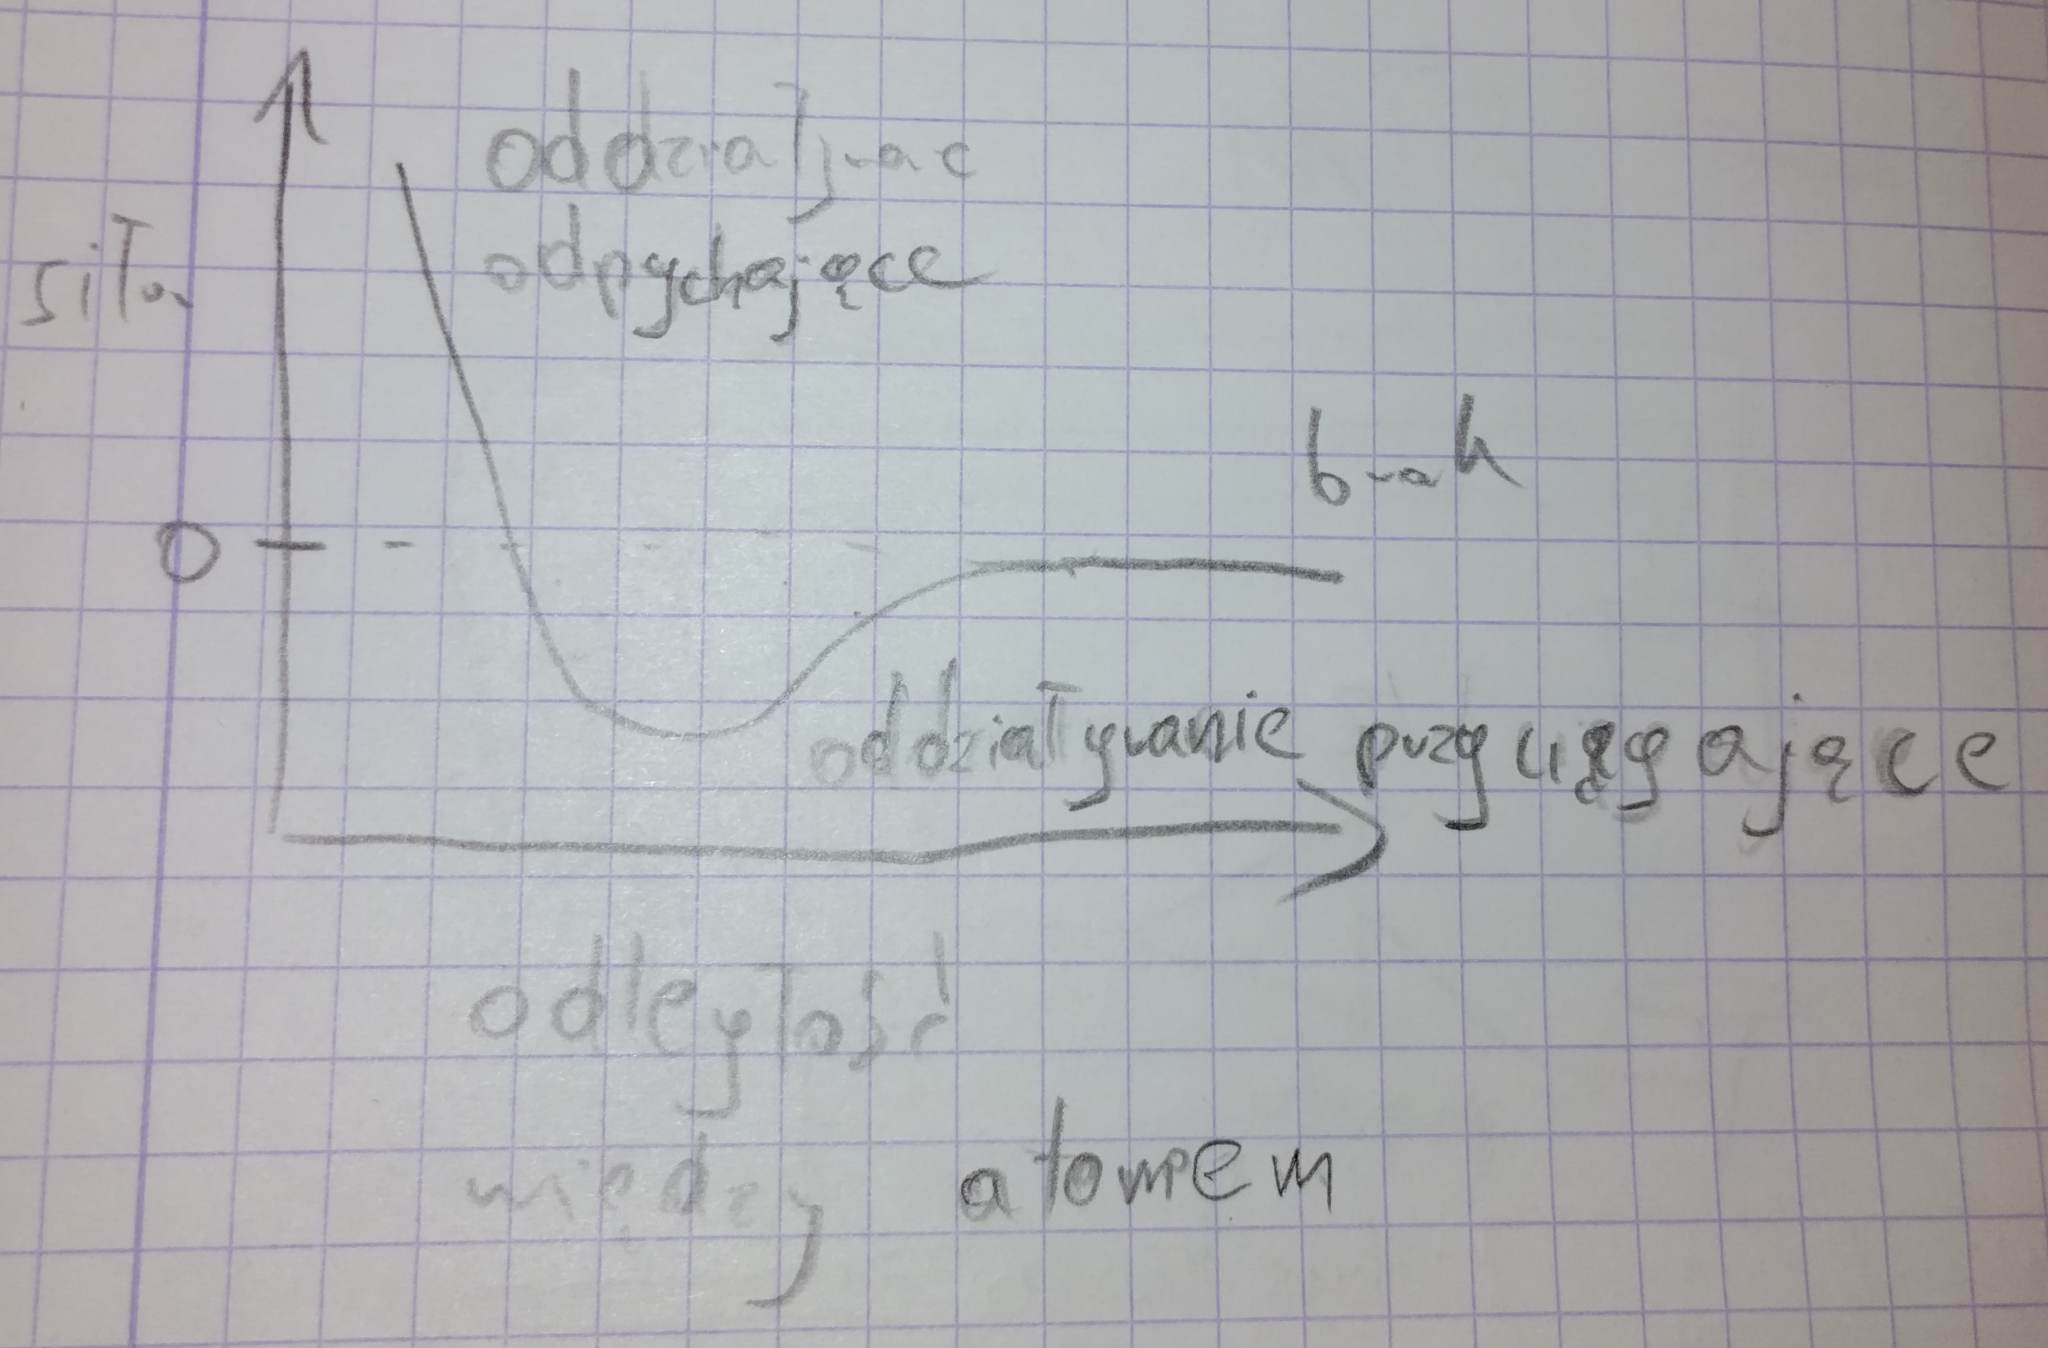 oddziaływać
odpychające
siła
brak
0
oddziaływanie przyciągające
odległość
między atomem